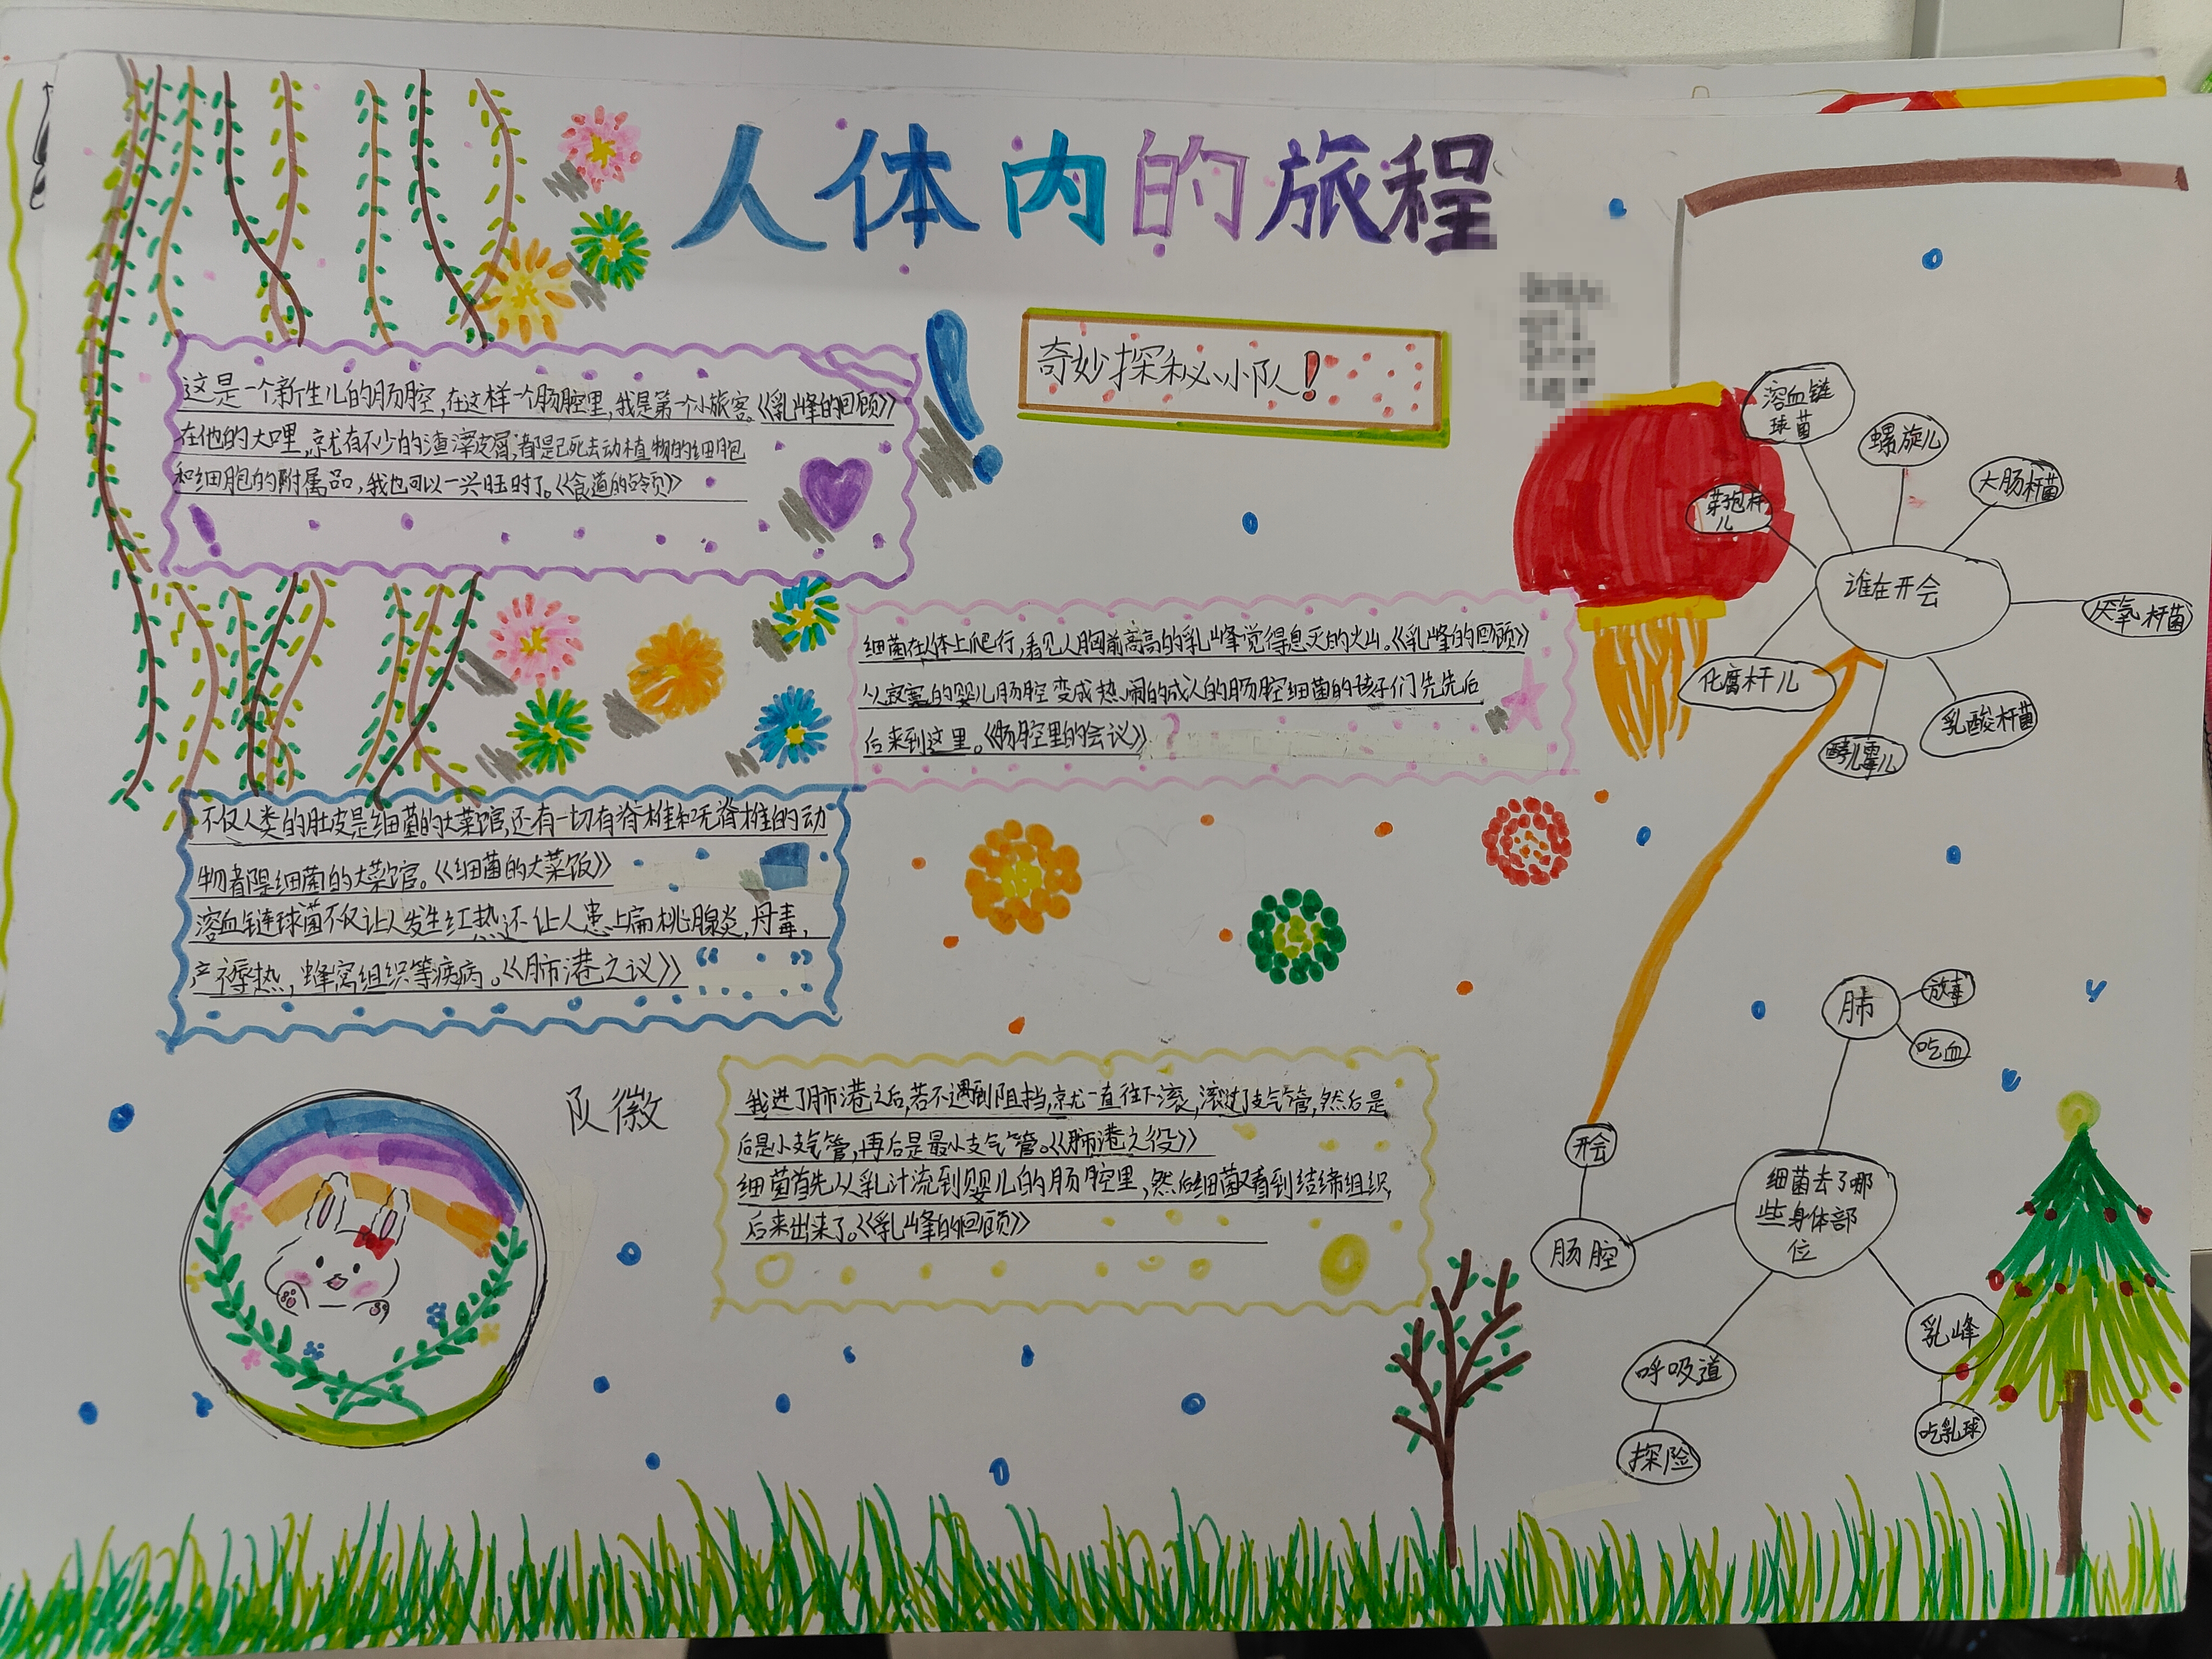 人体内的旅程
奇妙探秘小队！
这是一个新生儿的肠腔，在这样一个肠腔里，我是第一个小旅客。《乳峰的回顾》
在他的大哩，就有不少的渣滓皮屑，都是已死去动植物的细胞
和细胞的附属品，我也可以一兴旺时了。《食道的占领》
细菌在人体上爬行，看见人胸前高高的乳峰觉得息灭的火山。《乳峰的回顾》
从寂寞的婴儿肠腔变成热闹的成人的肠腔细菌的孩子们先先后
后来到这里。《肠腔里的会议》
不仅人类的肚皮是细菌的大菜馆，还有一切有脊椎和无脊椎的动
物都是细菌的大菜馆。《细菌的大菜饭》
溶血链球菌不仅让人发生红热还让人患上扁桃腺炎，丹毒，
产褥热，蜂窝组织等疾病。《肺港之议》
队徽
我进了肺港之后，若不遇到阻挡，就一直往下滚，滚过了支气管，然后是
后是小支气管，再后是最小支气管。《肺港之役》
细菌首先从乳汁流到婴儿的肠腔里，然后细菌又看到结缔组织，
后来出来了。《乳峰的回顾》
谁在开会
溶血链
球菌
螺旋儿
大肠杆菌
芽孢杆
儿
厌氧杆菌
化腐杆儿
乳酸杆菌
酵儿霉儿
细菌去了哪
些身体部
位
肺
放毒
吃血
开会
肠腔
呼吸道
探险
乳峰
吃乳球